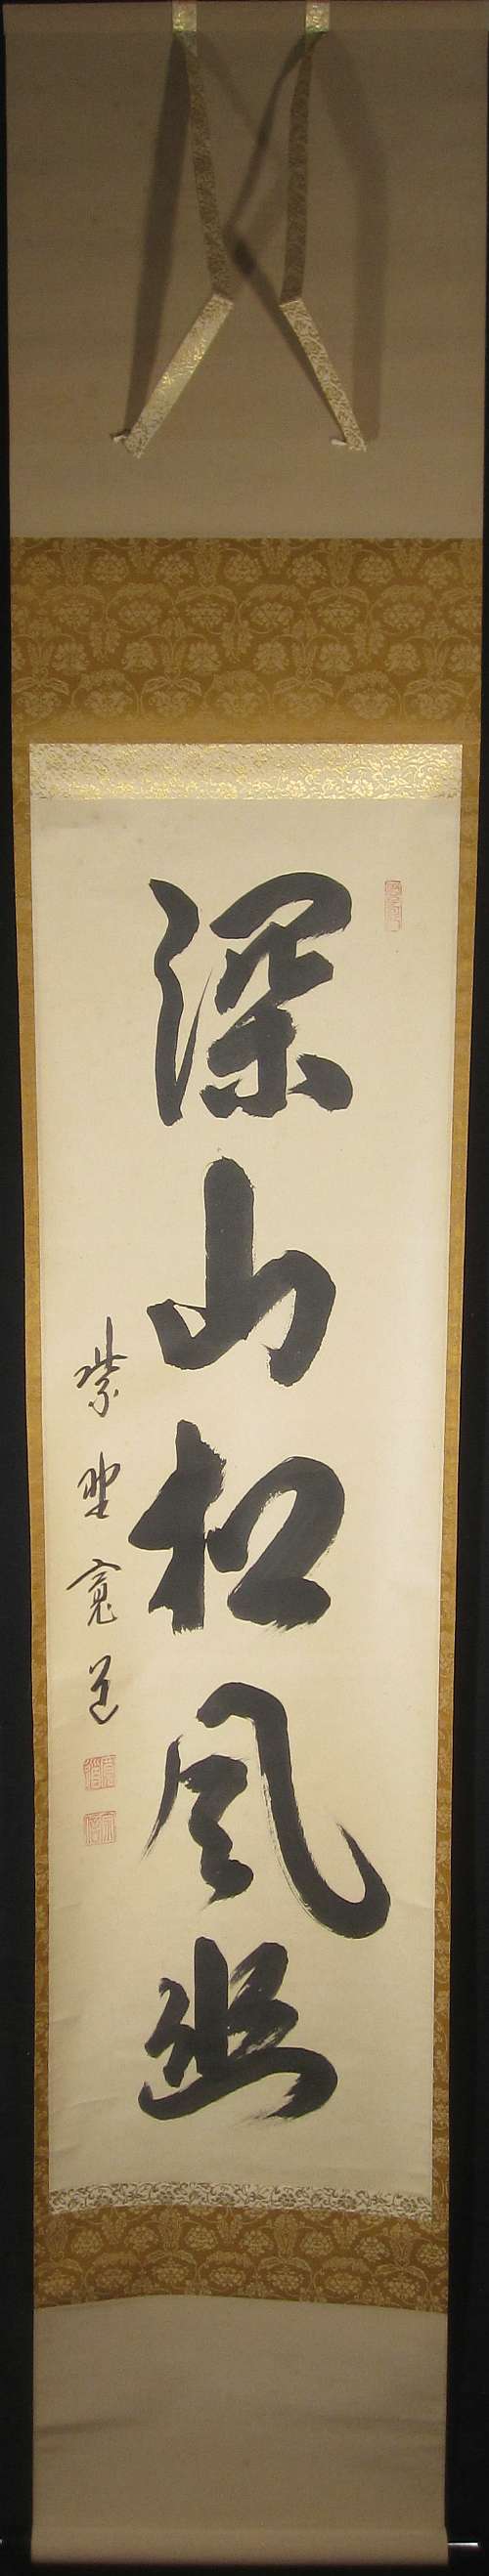 深山松風幽
紫野寛道